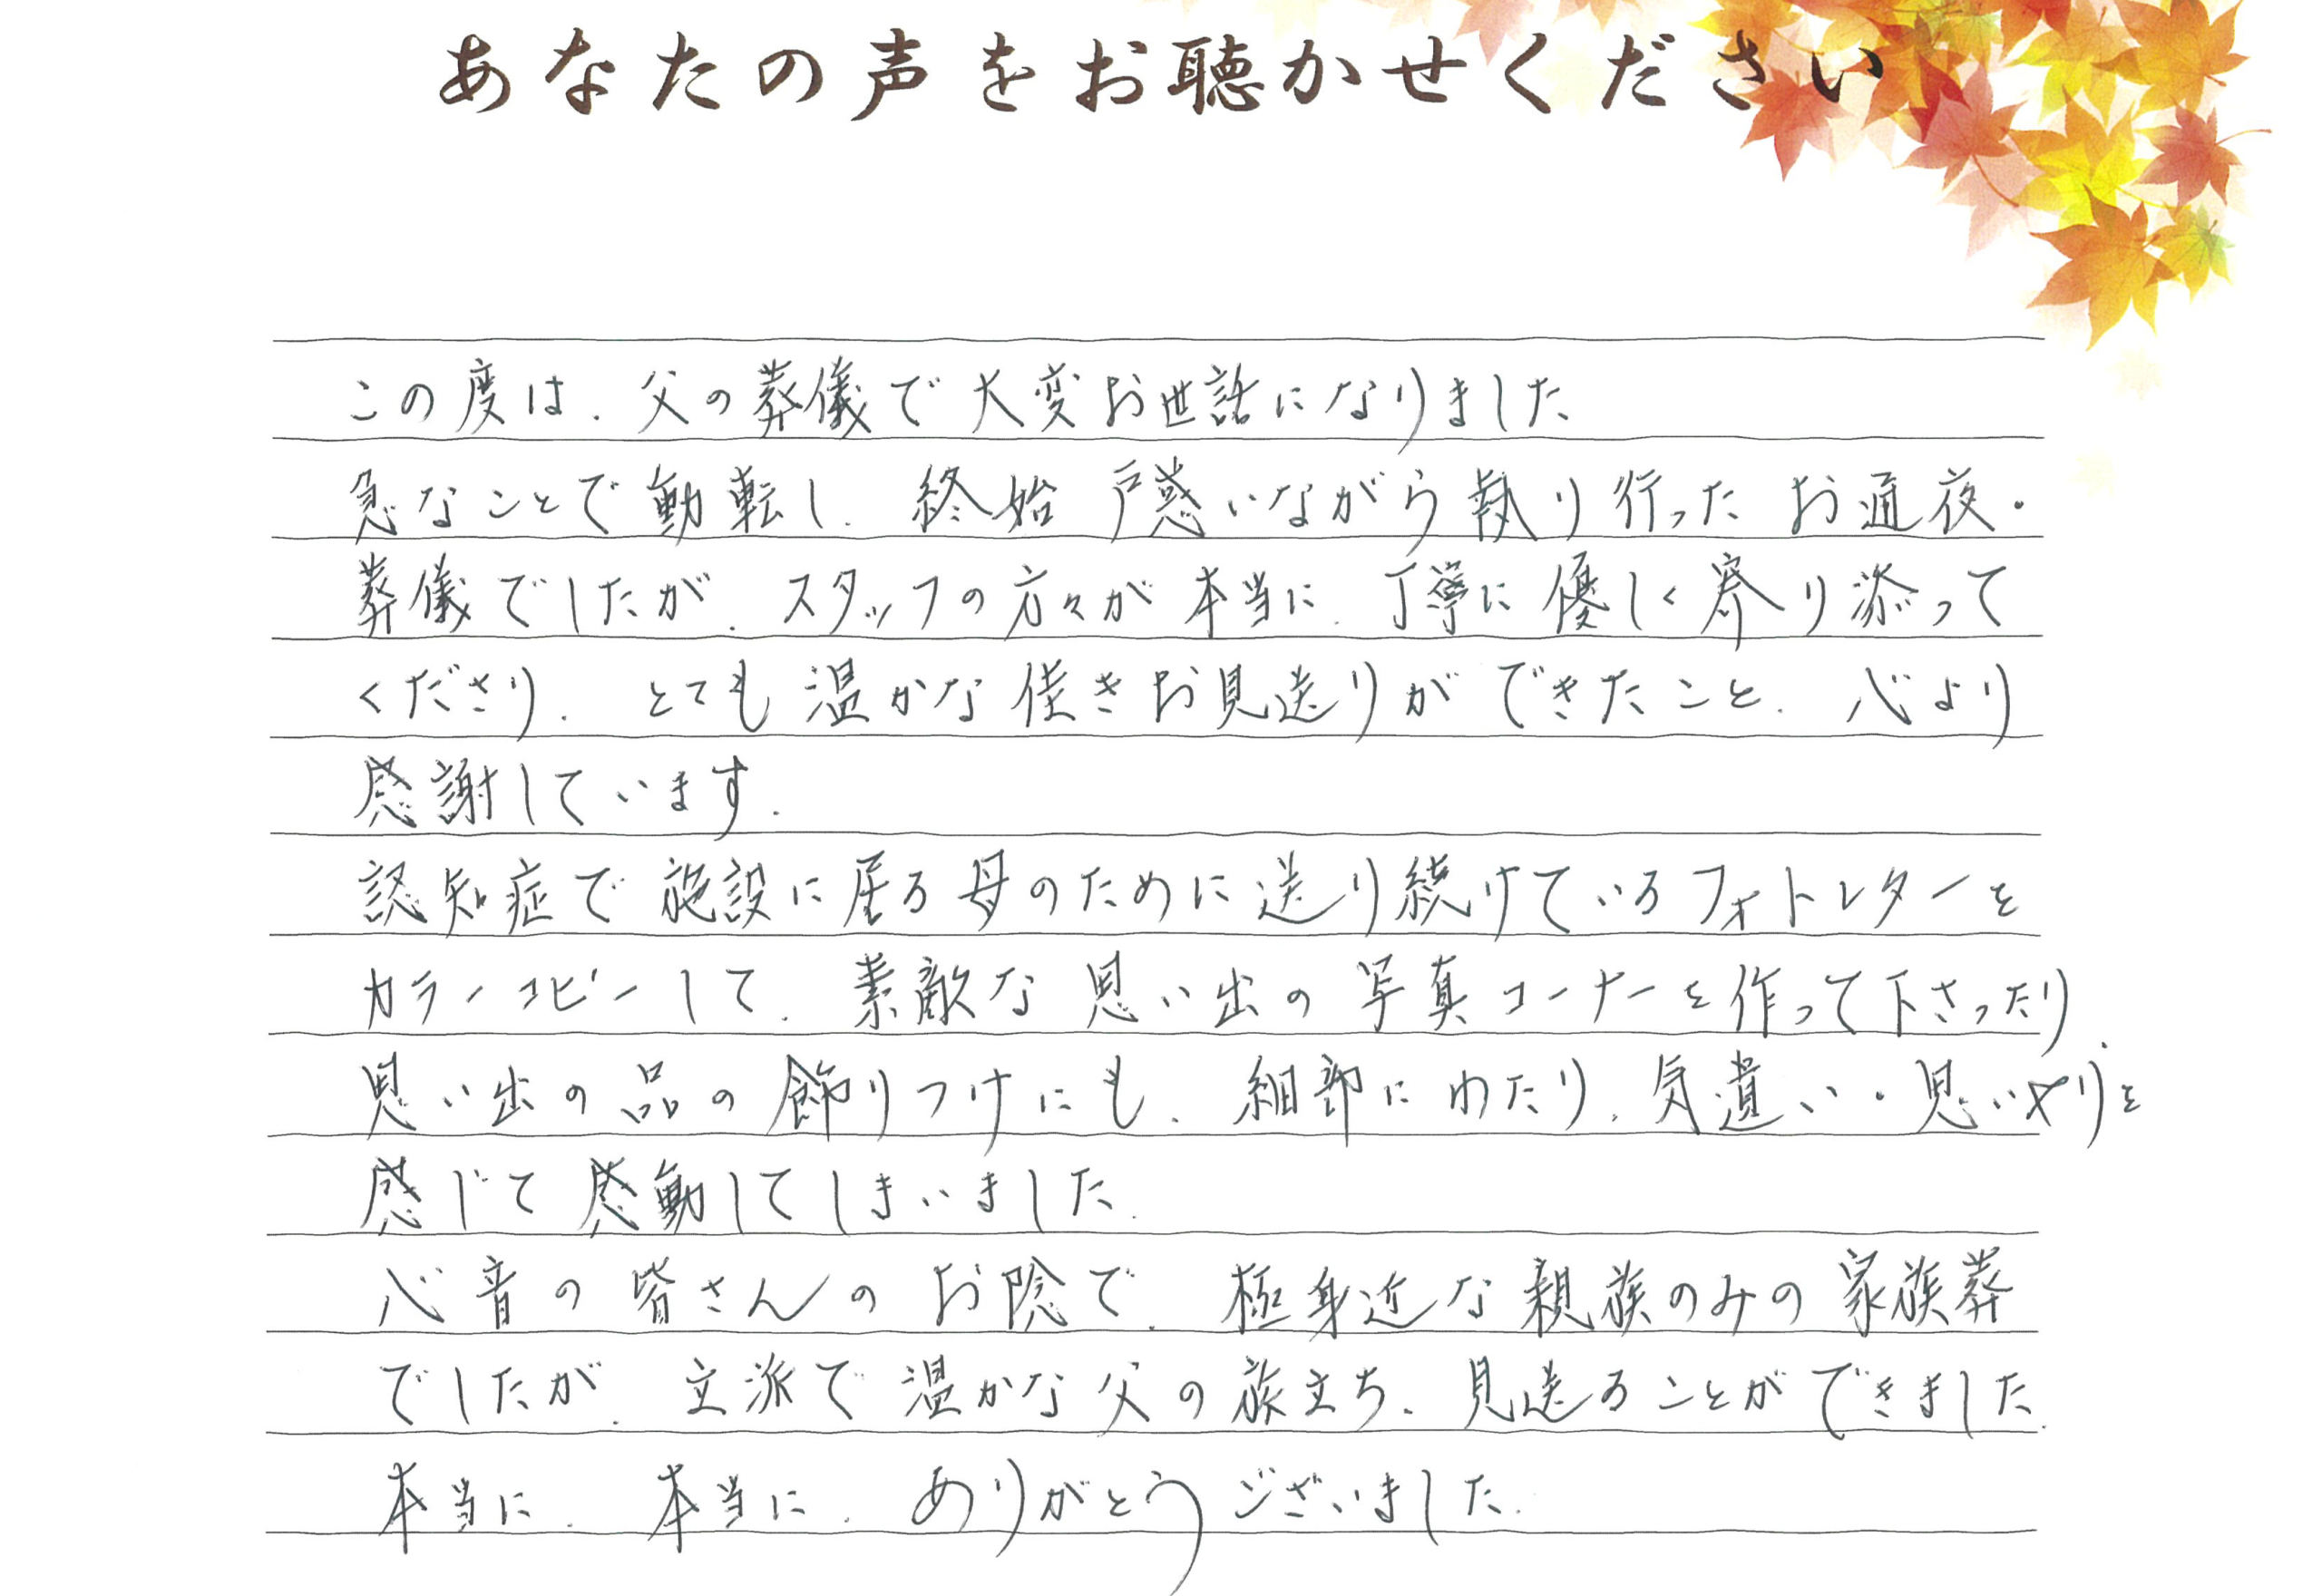 あなたの声をお聴かせください
この度は、父の葬儀で大変お世話になりました
急なことで動転し、終始戸惑いながら執り行ったお通夜・
葬儀でしたが、スタッフの方々が本当に、丁寧に優しく寄り添って
くださり、とても温かな佳きお見送りができたこと、心より
感謝しています。
認知症で施設に居る母のために送り続けているフォトレターを
カラーコピーして、素敵な思い出の写真コーナーを作って下さったり、
思い出の品の飾りつけにも、細部にわたり、気遣い・思いやりを
感じて感動してしまいました。
心音の皆さんのお陰で、極身近な親族のみの家族葬
でしたが、立派で温かな父の旅立ち、見送ることができました。
本当に、本当に、ありがとうございました。